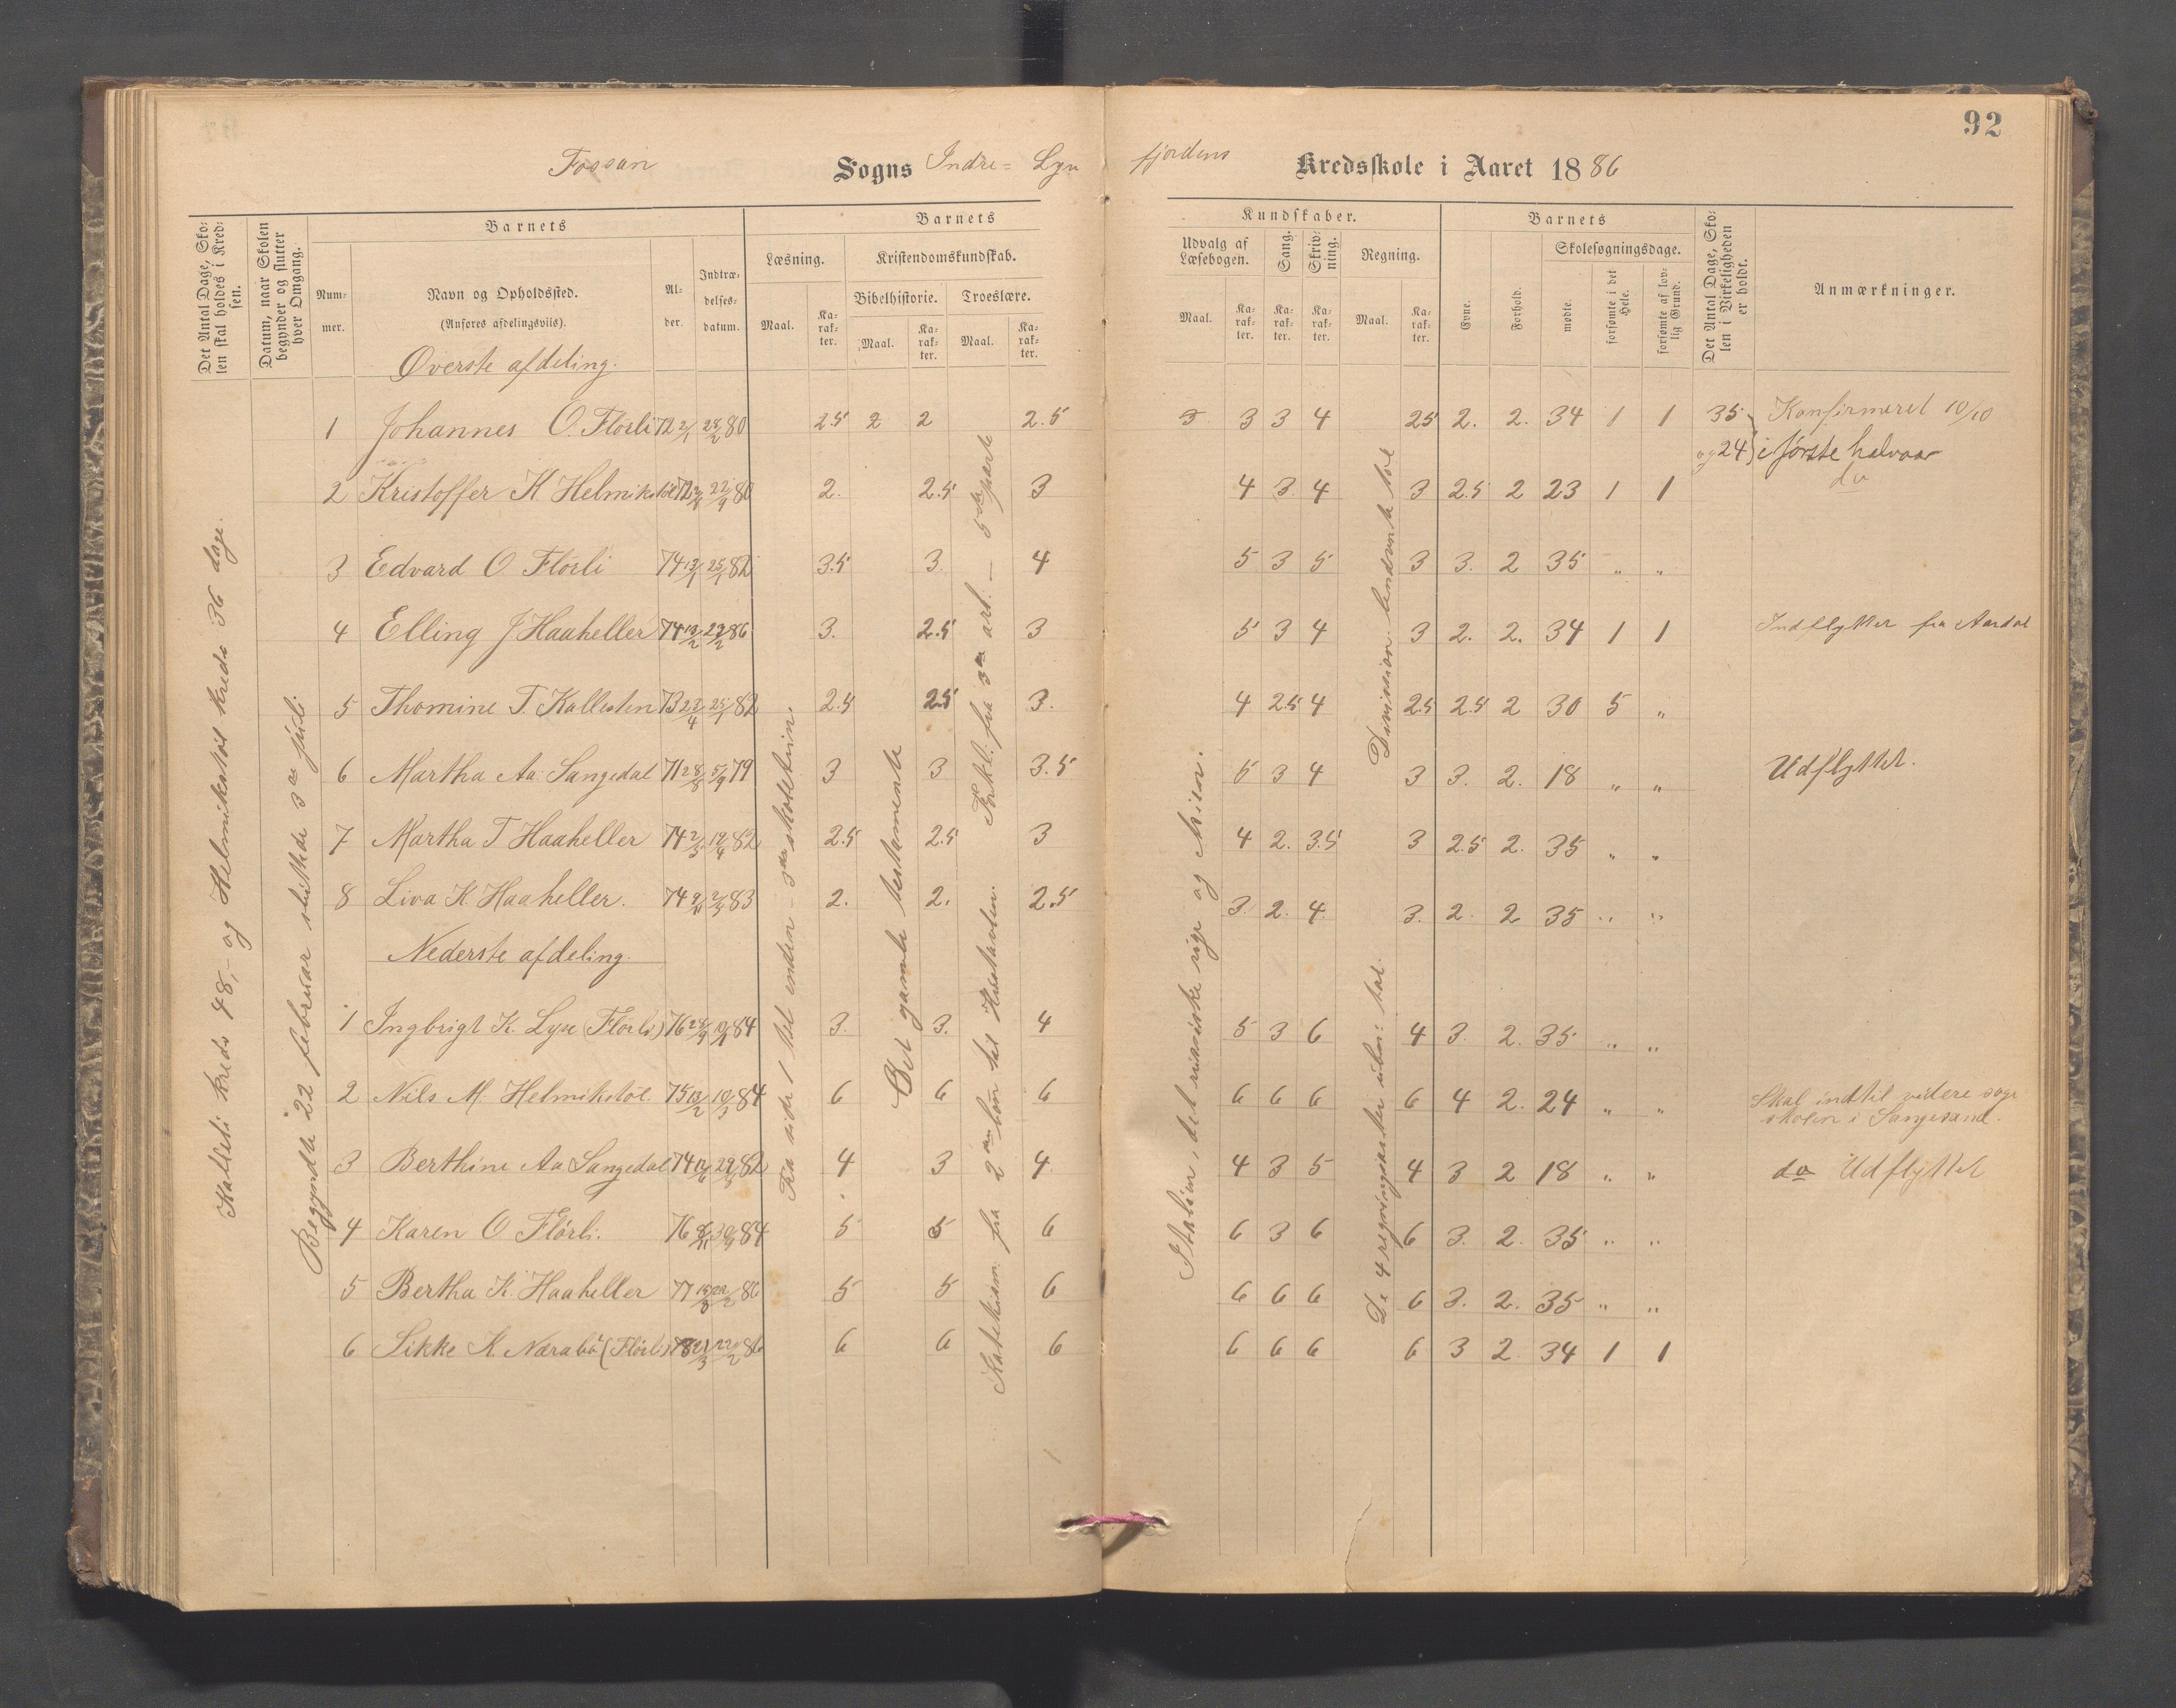 92
Fossan Sogns Indre= Lysefjordens Kredsskole i Aaret 1886
Det Antal Dage, Skolen skal holdes i Kredsen.
Datum, naar Skolen begynder og slutter hver Omgang.
Barnets
Nummer.
Navn og Opholdssted.
(Anføres afdelingsviis).
Alder.
Indtrædelsesdatum.
Barnets Kundskaber.
Læsning.
Maal.
Karakter.
Kristendomskundskab.
Bibelhistorie.
Maal.
Karakter.
Troeslære.
Maal.
Karakter.
Udvalg af Læsebogen.
Maal.
Karakter.
Sang.
Karakter.
Skrivning.
Karakter.
Regning.
Maal.
Karakter.
Barnets
Evne.
Forhold.
Skolesøgningsdage.
mødte.
forsømte i det Hele.
forsømte af lovlig Grund.
Det Antal Dage, Skolen i Virkeligheden er holdt.
Anmærkninger.
Øverste afdeling.
1 Johannes O. Flörli 72 2/1 28/2 80 2.5 2 2 2.5 3 3 3 4 2.5 2. 2. 34 1 1 35 Konfirmeret 10/10
og 24 i første halvaar
2 Kristoffer K Helmikstöl 72 22/9 80 2. 2.5 3 4 3 4 3 2.5 2 23 1 1 do
3 Edvard O Flörli 74 13/1 25/1 82 3.5 3. 4 5 3 5 3 3. 2 35 " "
4 Elling J Haaheller 74 19/2 22/2 86 3. 2.5 3 5 3 4 3 2. 2. 34 1 1 Indflyttet fra Aardal
5 Thomine T. Kallesten 73 23/4 25/1 82 2.5 2.5 3. 4 2.5 4 2.5 2.5 2 30 5 "
6 Martha Aa. Sangedal 71 28/8 5/9 79 3 3 3.5 5 3 4 3 3. 2. 18 " " Udflyttet.
7 Martha T Haaheller 74 2/5 19/4 82 2.5 2.5 3 4 2. 3.5 3 2.5 2. 35 " "
8 Liva K Haaheller. 74 83 2. 2. 2.5 3. 2. 4. 3. 2. 2 35 " "
Nederste afdeling.
1 Ingbrigt K. Lyse (Flörli) 76 28/9 84 3. 3. 4 5 3 6 4 3. 2. 35 " "
2 Nils M. Helmikstöl. 75 13/2 10/3 84 6 6 6 6 6 6 6 4 2. 24 " " Skal indtil videre søge
skolen i Sangesand.
3 Berthine Aa Sangedal 74 82 4 3 4. 4 3 5 4 3 2 18 " " do Udflyttet
4 Karen O Flörli. 76 84 5 5 6 6 3 6 6 3. 2. 35 " "
5 Bertha K. Haaheller 77 22/2 86 5 5 6 6 6 6 6 3. 2. 35 " "
6 Sikke K. Nærabö (Flörli) 78 21/3 22/2 86 6 6 6 6 6 6 6 3 2. 34 1 1
Kalleli kreds 48, - og Helmikstöl kreds 36 dage.
Begyndte 22 februar sluttede 3die juli
Fra side 1 til enden - 3die skoletrin.
Det gamle testamente
Katekism. fra 2den bön til Hustavlen. Forkl. fra 3die art. - 5te part
Italien, det russiske rige og Asien.
De 4 regningsarter ubn: tal. Division. benævnte tal